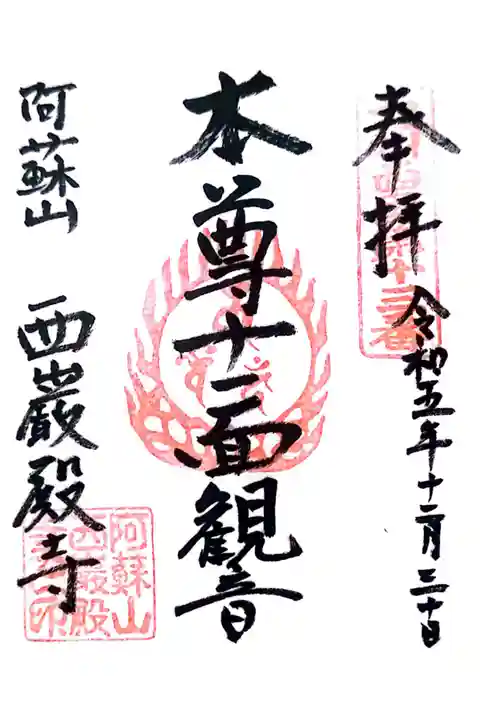 奉拝
令和五年十二月三十日
本尊十一面観音
阿蘇山 西巌殿寺
阿蘇山
西巌殿